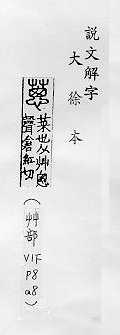 說文解字
大徐本
蔥
菜也从艸悤
聲倉紅切
(艸部 V1F P8 a8)